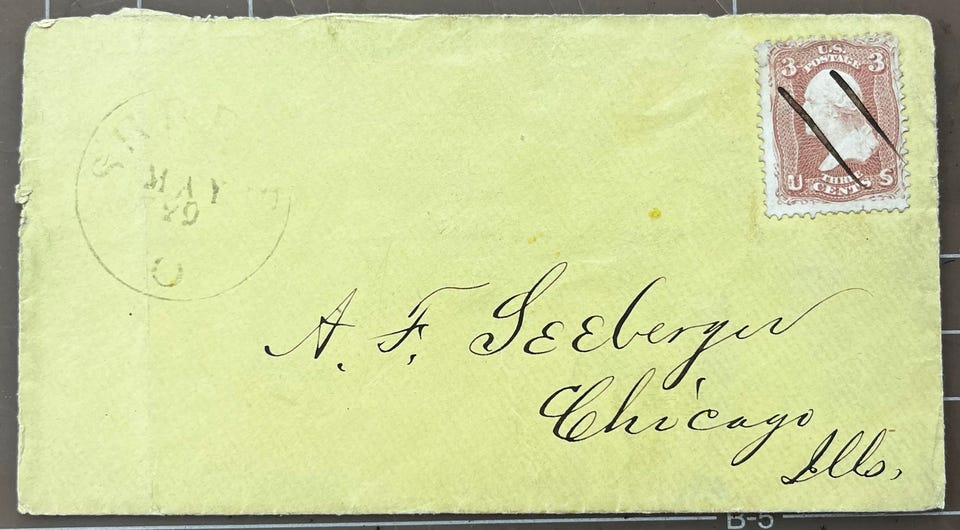 3 U.S. 3
POSTAGE
U THREE S
CENTS
MAY
20
O
A. F. Seeberger
Chicago
Ills.
B-5